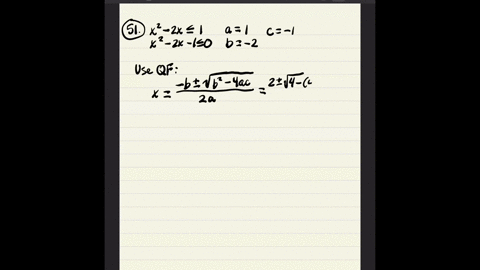 51. x² - 2x ≤ 1 a = 1 c = -1
x² - 2x - 1 ≤ 0 b = -2
Use QF:
x = (-b ± √(b² - 4ac))/(2a) = 2 ± √4 - (